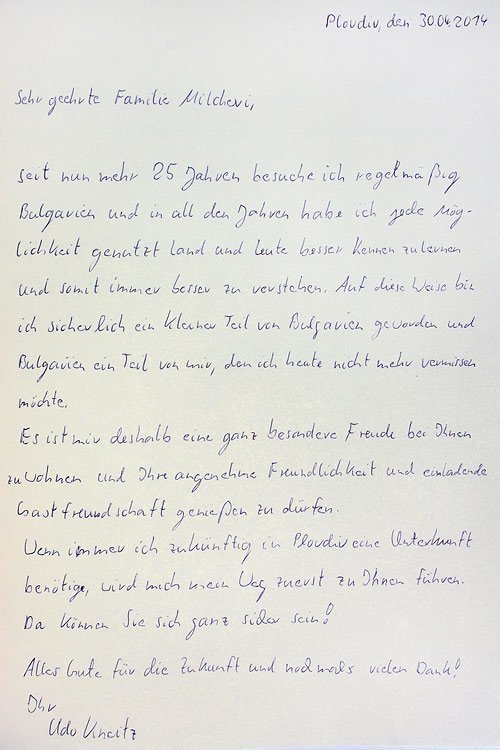 Plovdiv, den 30.04.2014
Sehr geehrte Familie Milchevi,
seit nun mehr 25 Jahren besuche ich regelmäßig
Bulgarien und in all den Jahren habe ich jede Mög-
lichkeit genutzt Land und Leute besser kennen zu lernen
und somit immer besser zu verstehen. Auf diese Weise bin
ich sicherlich ein kleiner Teil von Bulgarien geworden und
Bulgarien ein Teil von mir, den ich heute nicht mehr vermissen
möchte.
Es ist mir deshalb eine ganz besondere Freude bei Ihnen
zu wohnen und Ihre angenehme Freundlichkeit und einladende
Gastfreundschaft genießen zu dürfen.
Wenn immer ich zukünftig in Plovdiv eine Unterkunft
benötige, wird mich mein Weg zuerst zu Ihnen führen.
Da können Sie sich ganz sicher sein!
Alles Gute für die Zukunft und nochmals vielen Dank!
Ihr
Udo